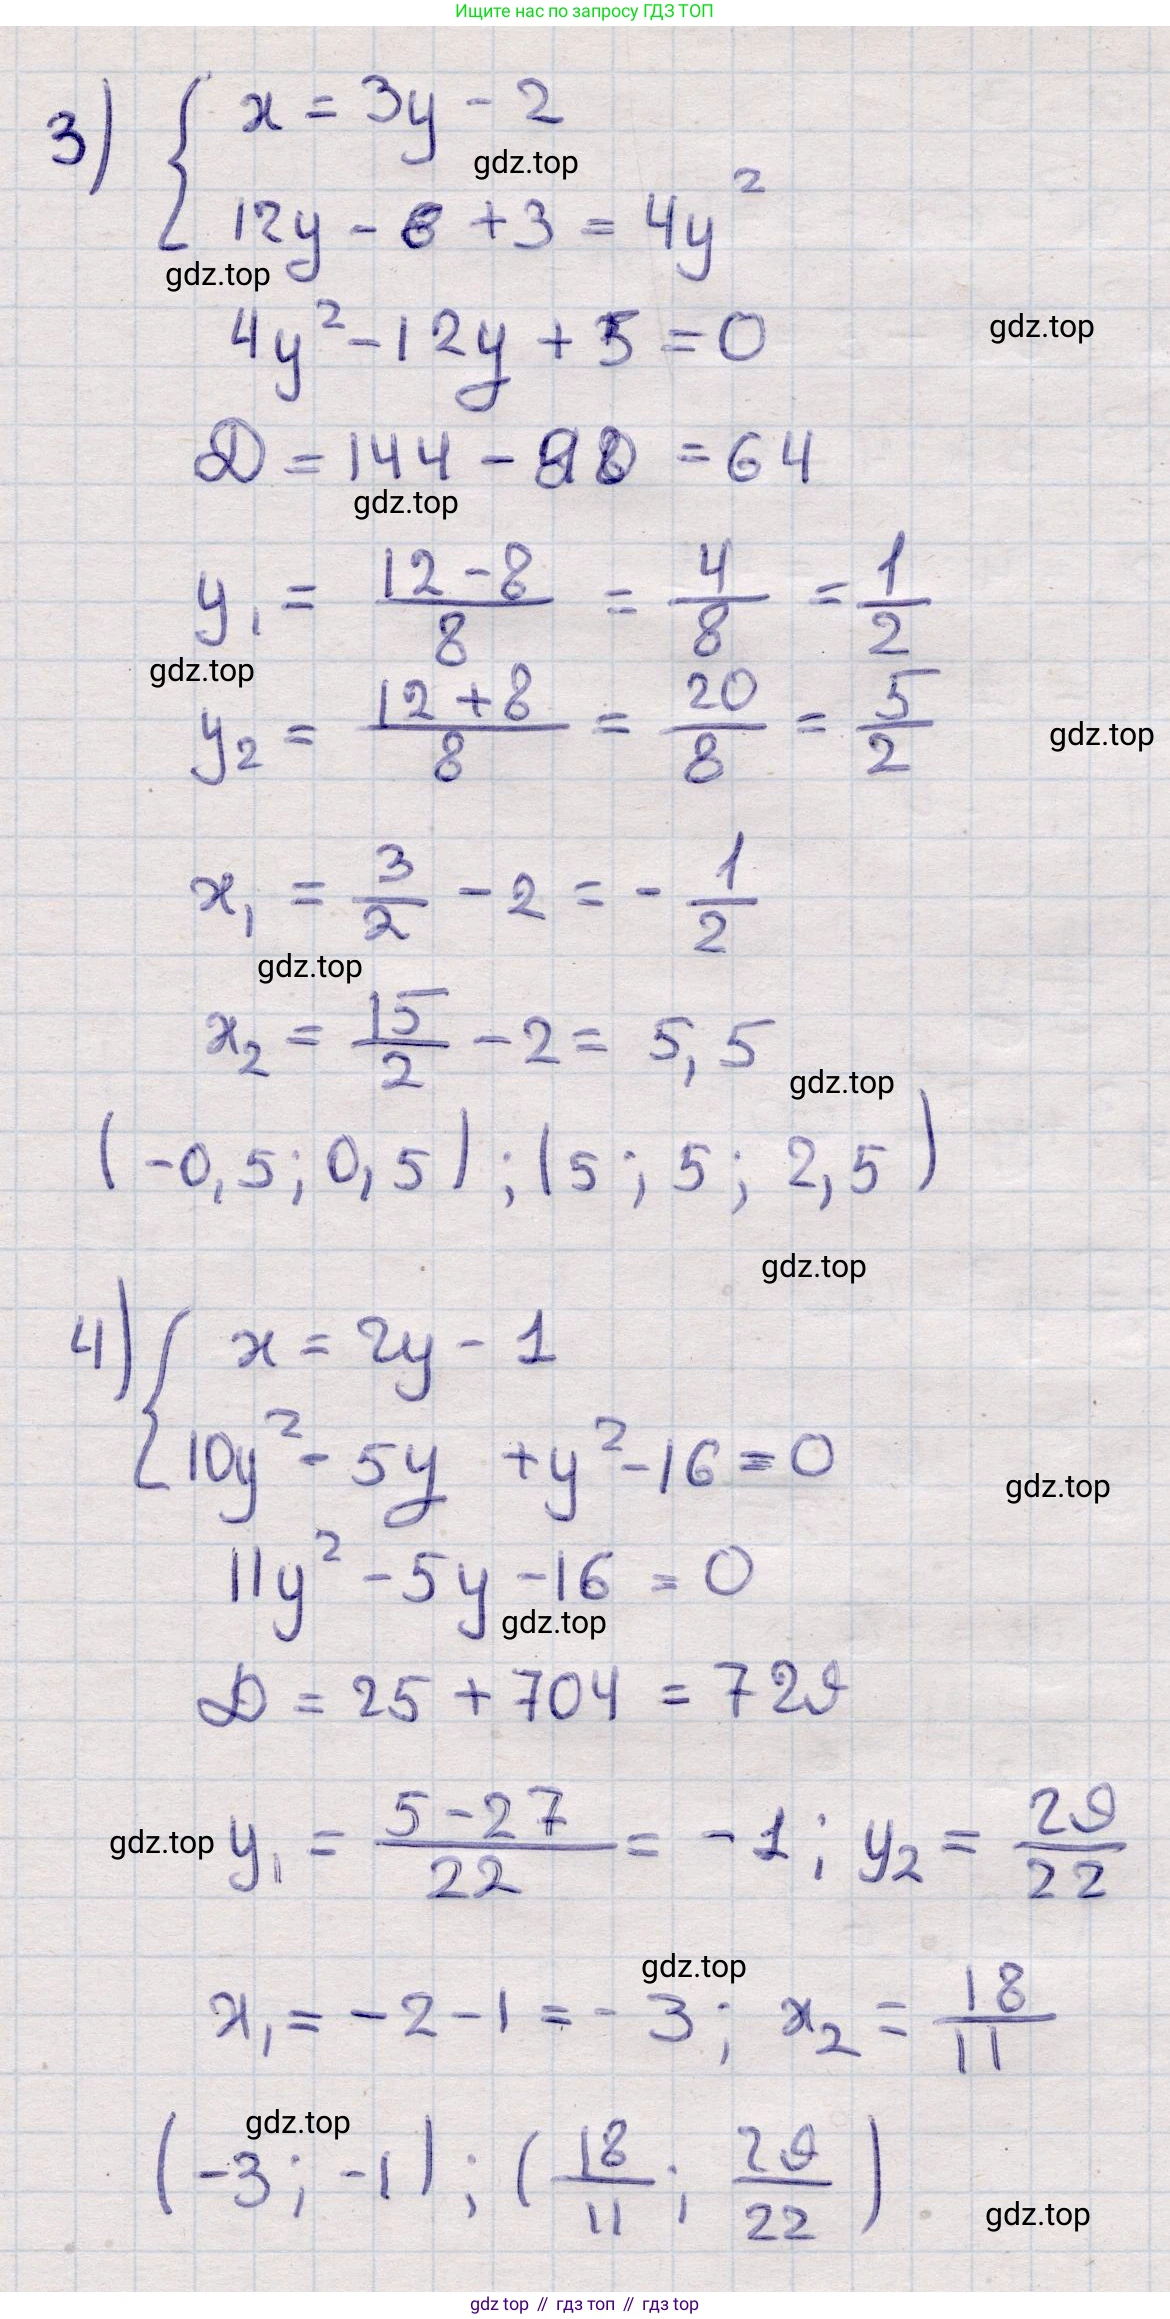 Ищите нас по запросу ГДЗ ТОП
3) { x = 3y - 2
gdz.top
12y - 8 + 3 = 4y²
gdz.top
4y² - 12y + 5 = 0
gdz.top
D = 144 - 80 = 64
gdz.top
y₁ = (12 - 8)/8 = 4/8 = 1/2
gdz.top
y₂ = (12 + 8)/8 = 20/8 = 5/2
gdz.top
x₁ = 3/2 - 2 = -1/2
gdz.top
x₂ = 15/2 - 2 = 5,5
gdz.top
(-0,5; 0,5); (5; 5; 2,5)
gdz.top
4) { x = 2y - 1
10y² - 5y + y² - 16 = 0
gdz.top
11y² - 5y - 16 = 0
gdz.top
D = 25 + 704 = 729
gdz.top
y₁ = (5 - 27)/22 = -1; y₂ = 29/22
gdz.top
x₁ = -2 - 1 = -3; x₂ = 18/11
gdz.top
(-3; -1); (18/11; 29/22)
gdz.top
gdz top // гдз топ // гдз top